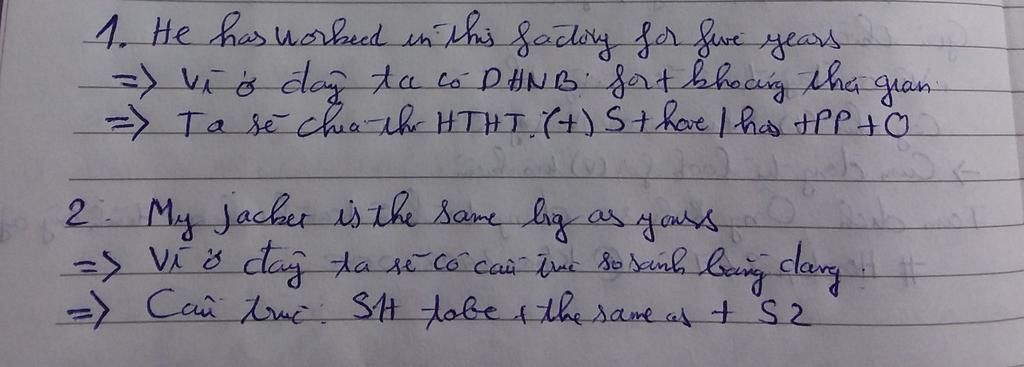 1. He has worked in this factory for five years
=> Vì ở đây ta có DHNB: for + khoảng thời gian.
=> Ta sẽ chia thì HTHT. (+) S + have / has + PP + O
2. My jacket is the same big as yours
=> Vì ở đây ta sẽ có cấu trúc so sánh bằng dạng.
=> Cấu trúc: S1 + tobe + the same as + S2